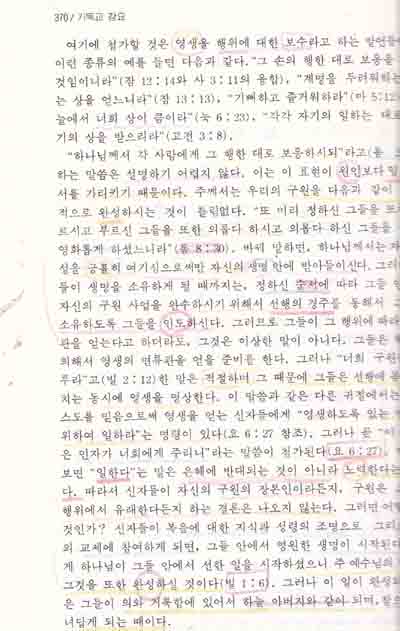 370/ 기독교 강요
여기에 첨가할 것은 영생을 행위에 대한 보수라고 하는 발언들
이런 종류의 예를 들면 다음과 같다. "그 손의 행한 대로 보응을
것임이니라"(잠 12:14와 사 3:11의 융합), "계명을 두려워하
는 상을 얻느니라"(잠 13:13), "기뻐하고 즐거워하라"(마 5:12
늘에서 너희 상이 큼이라"(눅 6:23), "각각 자기의 일하는 대로
기의 상을 받으리라"(고전 3:8).
"하나님께서 각 사람에게 그 행한 대로 보응하시되"라고(롬
하는 말씀은 설명하기 어렵지 않다. 이는 이 표현이 원인보다
서를 가리키기 때문이다. 주께서는 우리의 구원을 다음과 같이
적으로 완성하시는 것이 틀림없다. "또 미리 정하신 그들을 또
르시고 부르신 그들을 또한 의롭다 하시고 의롭다 하신 그들을
영화롭게 하셨느니라"(롬 8:30). 바꿔 말하면, 하나님께서는 자
실을 긍휼히 여기심으로써만 자신의 생명 안에 받아들이신다. 그러
들이 생명을 소유하게 될 때까지는, 정하신 순서에 따라 그들
자신의 구원 사업을 완수하시기 위해서 선행의 경주를 통해서
소유하도록 그들을 인도하신다. 그러므로 그들이 그 행위에 따라
관을 얻는다고 하더라도, 그것은 이상한 말이 아니다. 그들은
의해서 영생의 면류관을 얻을 준비를 한다. 그러나 "너희 구원
루라"고(빌 2:12)한 말은 적절하며 그 때문에 그들은 선행에
치는 동시에 영생을 명상한다. 이 말씀과 같은 다른 귀절에서는
스도를 믿음으로써 영생을 얻는 신자들에게 "영생하도록 있는
위하여 일하라"는 명령이 있다(요 6:27 참조). 그러나 곧 "이
은 인자가 너희에게 주리니"라는 말씀이 첨가된다(요 6:27).
보면 "일한다"는 말은 은혜에 반대되는 것이 아니라 노력한다는
다. 따라서 신자들이 자신의 구원의 장본인이라든지, 구원은
행위에서 유래한다든지 하는 결론은 나오지 않는다. 그러면 어떻
것인가? 신자들이 복음에 대한 지식과 성령의 조명으로 그리
의 교제에 참여하게 되면, 그들 안에서 영원한 생명이 시작된다
게 하나님이 그들 안에서 선한 일을 시작하셨으니 주 예수님의
그것을 또한 완성하실 것이다(빌 1:6). 그러나 이 일이 완성되
은 그들이 의와 거룩함에 있어서 하늘 아버지와 같이 되며,
녀답게 되는 때이다.